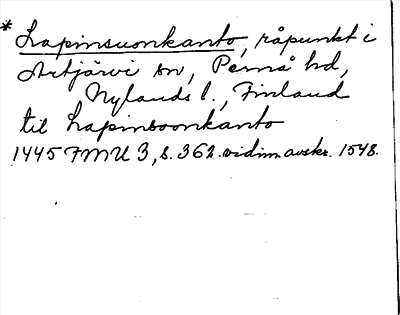 * Lapinsuonkanto, råpunkt i
Artjärvi sn, Pernå hd,
Nylands l., Finland
til Lapinsoonkanto
1445 FMU 3, s. 362. vidim. avskr. 1548.